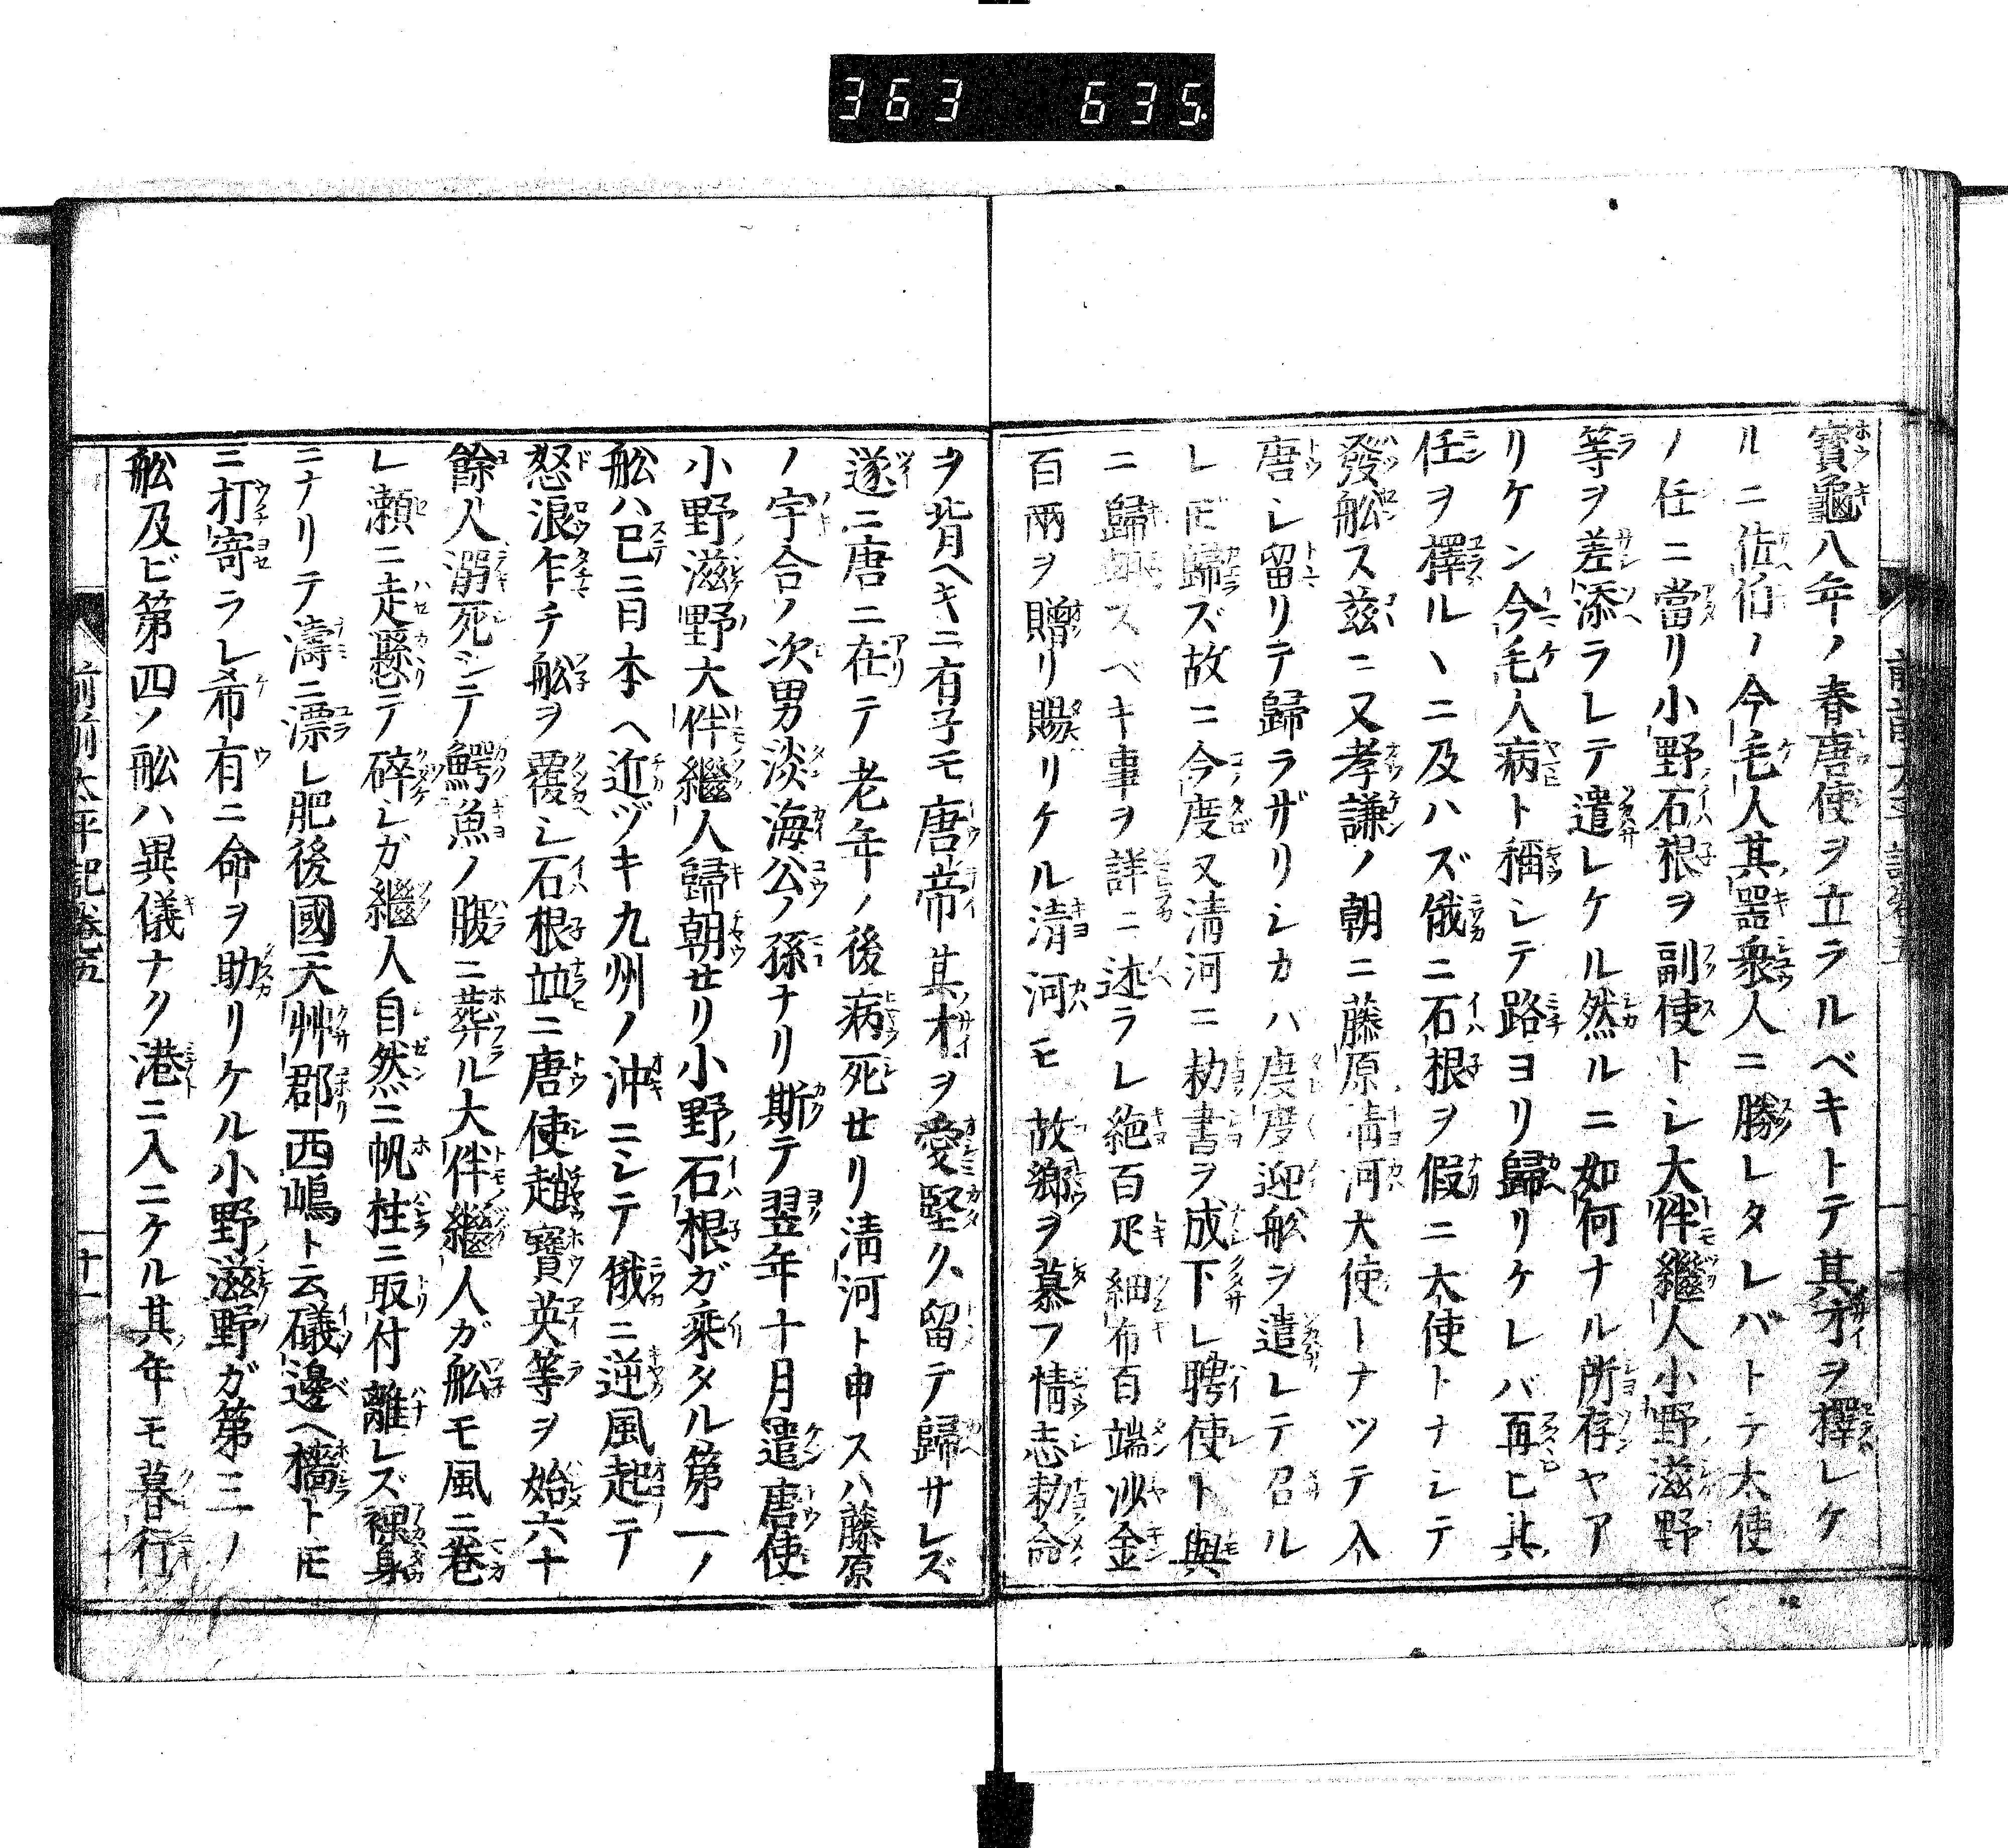 363 635
寳龜八年ノ春唐使ヲ立ラルベキトテ其才ヲ擇レケ
ルニ佐伯ノ今毛人其噐衆人ニ勝レタレバトテ大使
ノ任ニ當リ小野石根ヲ副使トシ大伴繼人小野滋野
等ヲ差添ラレテ遣レケル然ルニ如何ナル所存ヤア
リケン今毛人病ト稱シテ路ヨリ歸リケレバ再ヒ其
任ヲ擇ルヽニ及ハズ俄ニ石根ヲ假ニ大使トナシテ
發舩ス兹ニ又孝謙ノ朝ニ藤原淸河大使トナツテ入
唐シ留リテ歸ラザリシカハ度度迎舩ヲ遣レテ召ル
レ𪜈歸ズ故ニ今度又淸河ニ勅書ヲ成下レ聘使ト與
ニ歸朝スベキ事ヲ詳ニ述ラレ絁百疋細布百端沙金
百兩ヲ贈リ賜リケル淸河モ故鄕ヲ慕フ情志勅命
ヲ背ヘキニ有子モ唐帝其才ヲ愛堅ク留テ歸サレズ
遂ニ唐ニ在テ老年ノ後病死せリ淸河ト申スハ藤原
ノ宇合ノ次男淡海公ノ孫ナリ斯テ翌年十月遣唐使
小野滋野大伴繼人歸朝せリ小野石根ガ乘タル第一ノ
舩ハ巳ニ日本ヘ近ヅキ九州ノ沖ニシテ俄ニ逆風起テ
怒浪乍チ舩ヲ覆シ石根並ニ唐使趙寶英等ヲ始六十
餘人溺死シテ鰐魚ノ腹ニ葬ル大伴繼人ガ舩モ風ニ巻
レ瀬ニ走懸テ碎シガ繼人自然ニ帆柱ニ取付離レズ裸身
ニナリテ濤ニ漂レ肥後國天艸郡西嶋ト云礒邊ヘ檣ト𪜈
ニ打寄ラレ希有ニ命ヲ助リケル小野滋野ガ第三ノ
舩及ビ第四ノ舩ハ異儀ナク港ニ入ニケル其年モ暮行
前前太平記卷五
十一